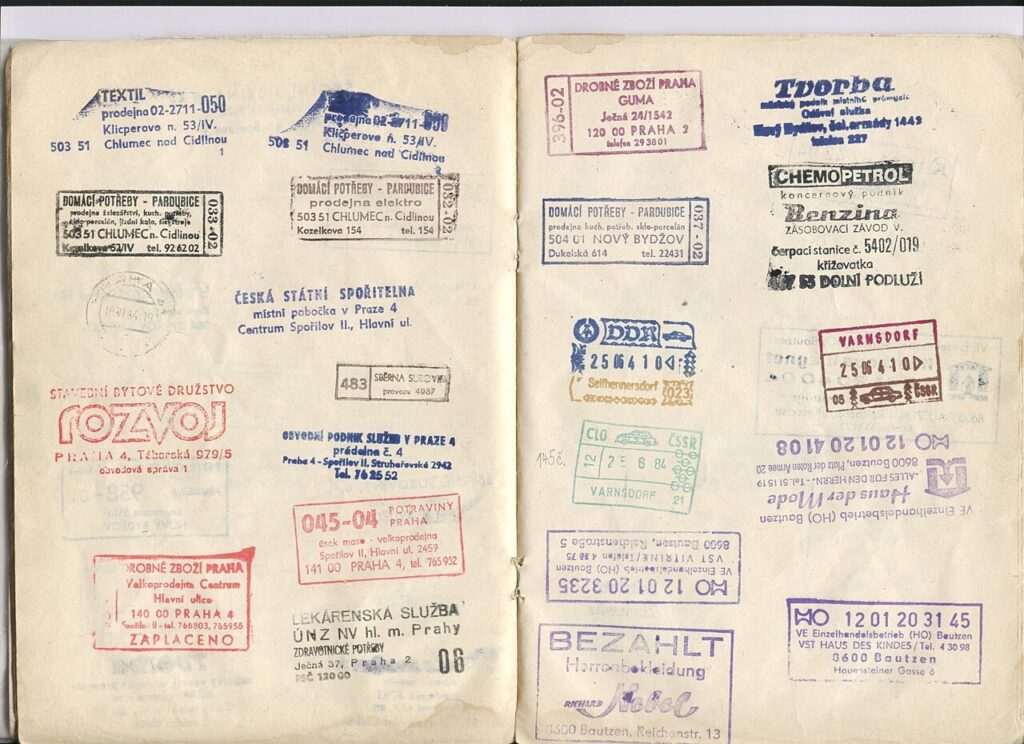 TEXTIL
prodejna 02-2711-050
Klicperova n. 53/IV.
503 51 Chlumec nad Cidlinou
1
prodejna 02-2711-
Klicperova n. 53/IV.
503 51 Chlumec nad Cidlinou
DOMÁCÍ POTŘEBY - PARDUBICE
prodejna železářství, kuch. potřeby,
sklo-porcelán, jízdní kola,
503 51 CHLUMEC n. Cidlinou
Kozelkova 52/IV tel. 92 62 02
033-02
DOMÁCÍ POTŘEBY - PARDUBICE
prodejna elektro
503 51 CHLUMEC n. Cidlinou
Kozelkova 154 tel. 154
032-02
PRAHA
ČESKÁ STÁTNÍ SPOŘITELNA
místní pobočka v Praze 4
Centrum Spořilov II., Hlavní ul.
483 SBĚRNA SUROVIN
provoz 4987
STAVEBNÍ BYTOVÉ DRUŽSTVO
ROZVOJ
PRAHA 4, Táborská 979/5
obvodová správa 1
OBVODNÍ PODNIK SLUŽEB V PRAZE 4
prádelna č. 4
Praha 4 - Spořilov II. Struhařovská 2942
Tel. 76 25 52
045-04 POTRAVINY
PRAHA
úsek maso - velkoprodejna
Spořilov II, Hlavní ul. 2459
141 00 PRAHA 4, tel. 765 952
DROBNÉ ZBOŽÍ PRAHA
Velkoprodejna Centrum
Hlavní ulice
140 00 PRAHA 4
Spořilov II - tel. 766803, 765955
ZAPLACENO
LEKÁRENSKÁ SLUŽBA
ÚNZ NV hl. m. Prahy
ZDRAVOTNICKÉ POTŘEBY
Ječná 37, Praha 2
PSČ 120 00
06
396-02
DROBNÉ ZBOŽÍ PRAHA
GUMA
Ječná 24/1542
120 00 PRAHA 2
telefon 29 38 01
Tvorba
městský podnik místního průmyslu
Oděvní služba
Nový Bydžov, čsl. armády 1442
telefon 227
DOMÁCÍ POTŘEBY - PARDUBICE
prodejna kuch. potřeb, sklo-porcelán
504 01 NOVÝ BYDŽOV
Dukelská 614 tel. 22431
037-02
CHEMOPETROL
koncernový podnik
Benzina
ZÁSOBOVACÍ ZÁVOD V.
Čerpací stanice č. 5402/019
křižovatka
55 DOLNÍ PODLUŽÍ
DDR
25 06 4 10
Seifhennersdorf
023
VARNSDORF
25 06 4 10
08 ČSSR
145č.
CLO ČSSR
12 25 6 84
VARNSDORF 21
HO 12 01 20 41 08
VE Einzelhandelsbetrieb (HO) Bautzen
Haus der Mode
"ALLES FÜR DEN HERRN"
8600 Bautzen, Platz der Roten Armee 20
Tel. 51 51 19
HO 12 01 20 3235
VE Einzelhandelsbetrieb (HO) Bautzen
VST VITRINE/Telefon 4 88 75
8600 Bautzen, Reichenstraße 5
BEZAHLT
Herrenbekleidung
RICHARD Nobel
8600 Bautzen, Reichenstr. 13
HO 12 01 20 31 45
VE Einzelhandelsbetrieb (HO) Bautzen
VST HAUS DES KINDES / Tel. 4 30 98
8600 Bautzen
Hauensteiner Gasse 6